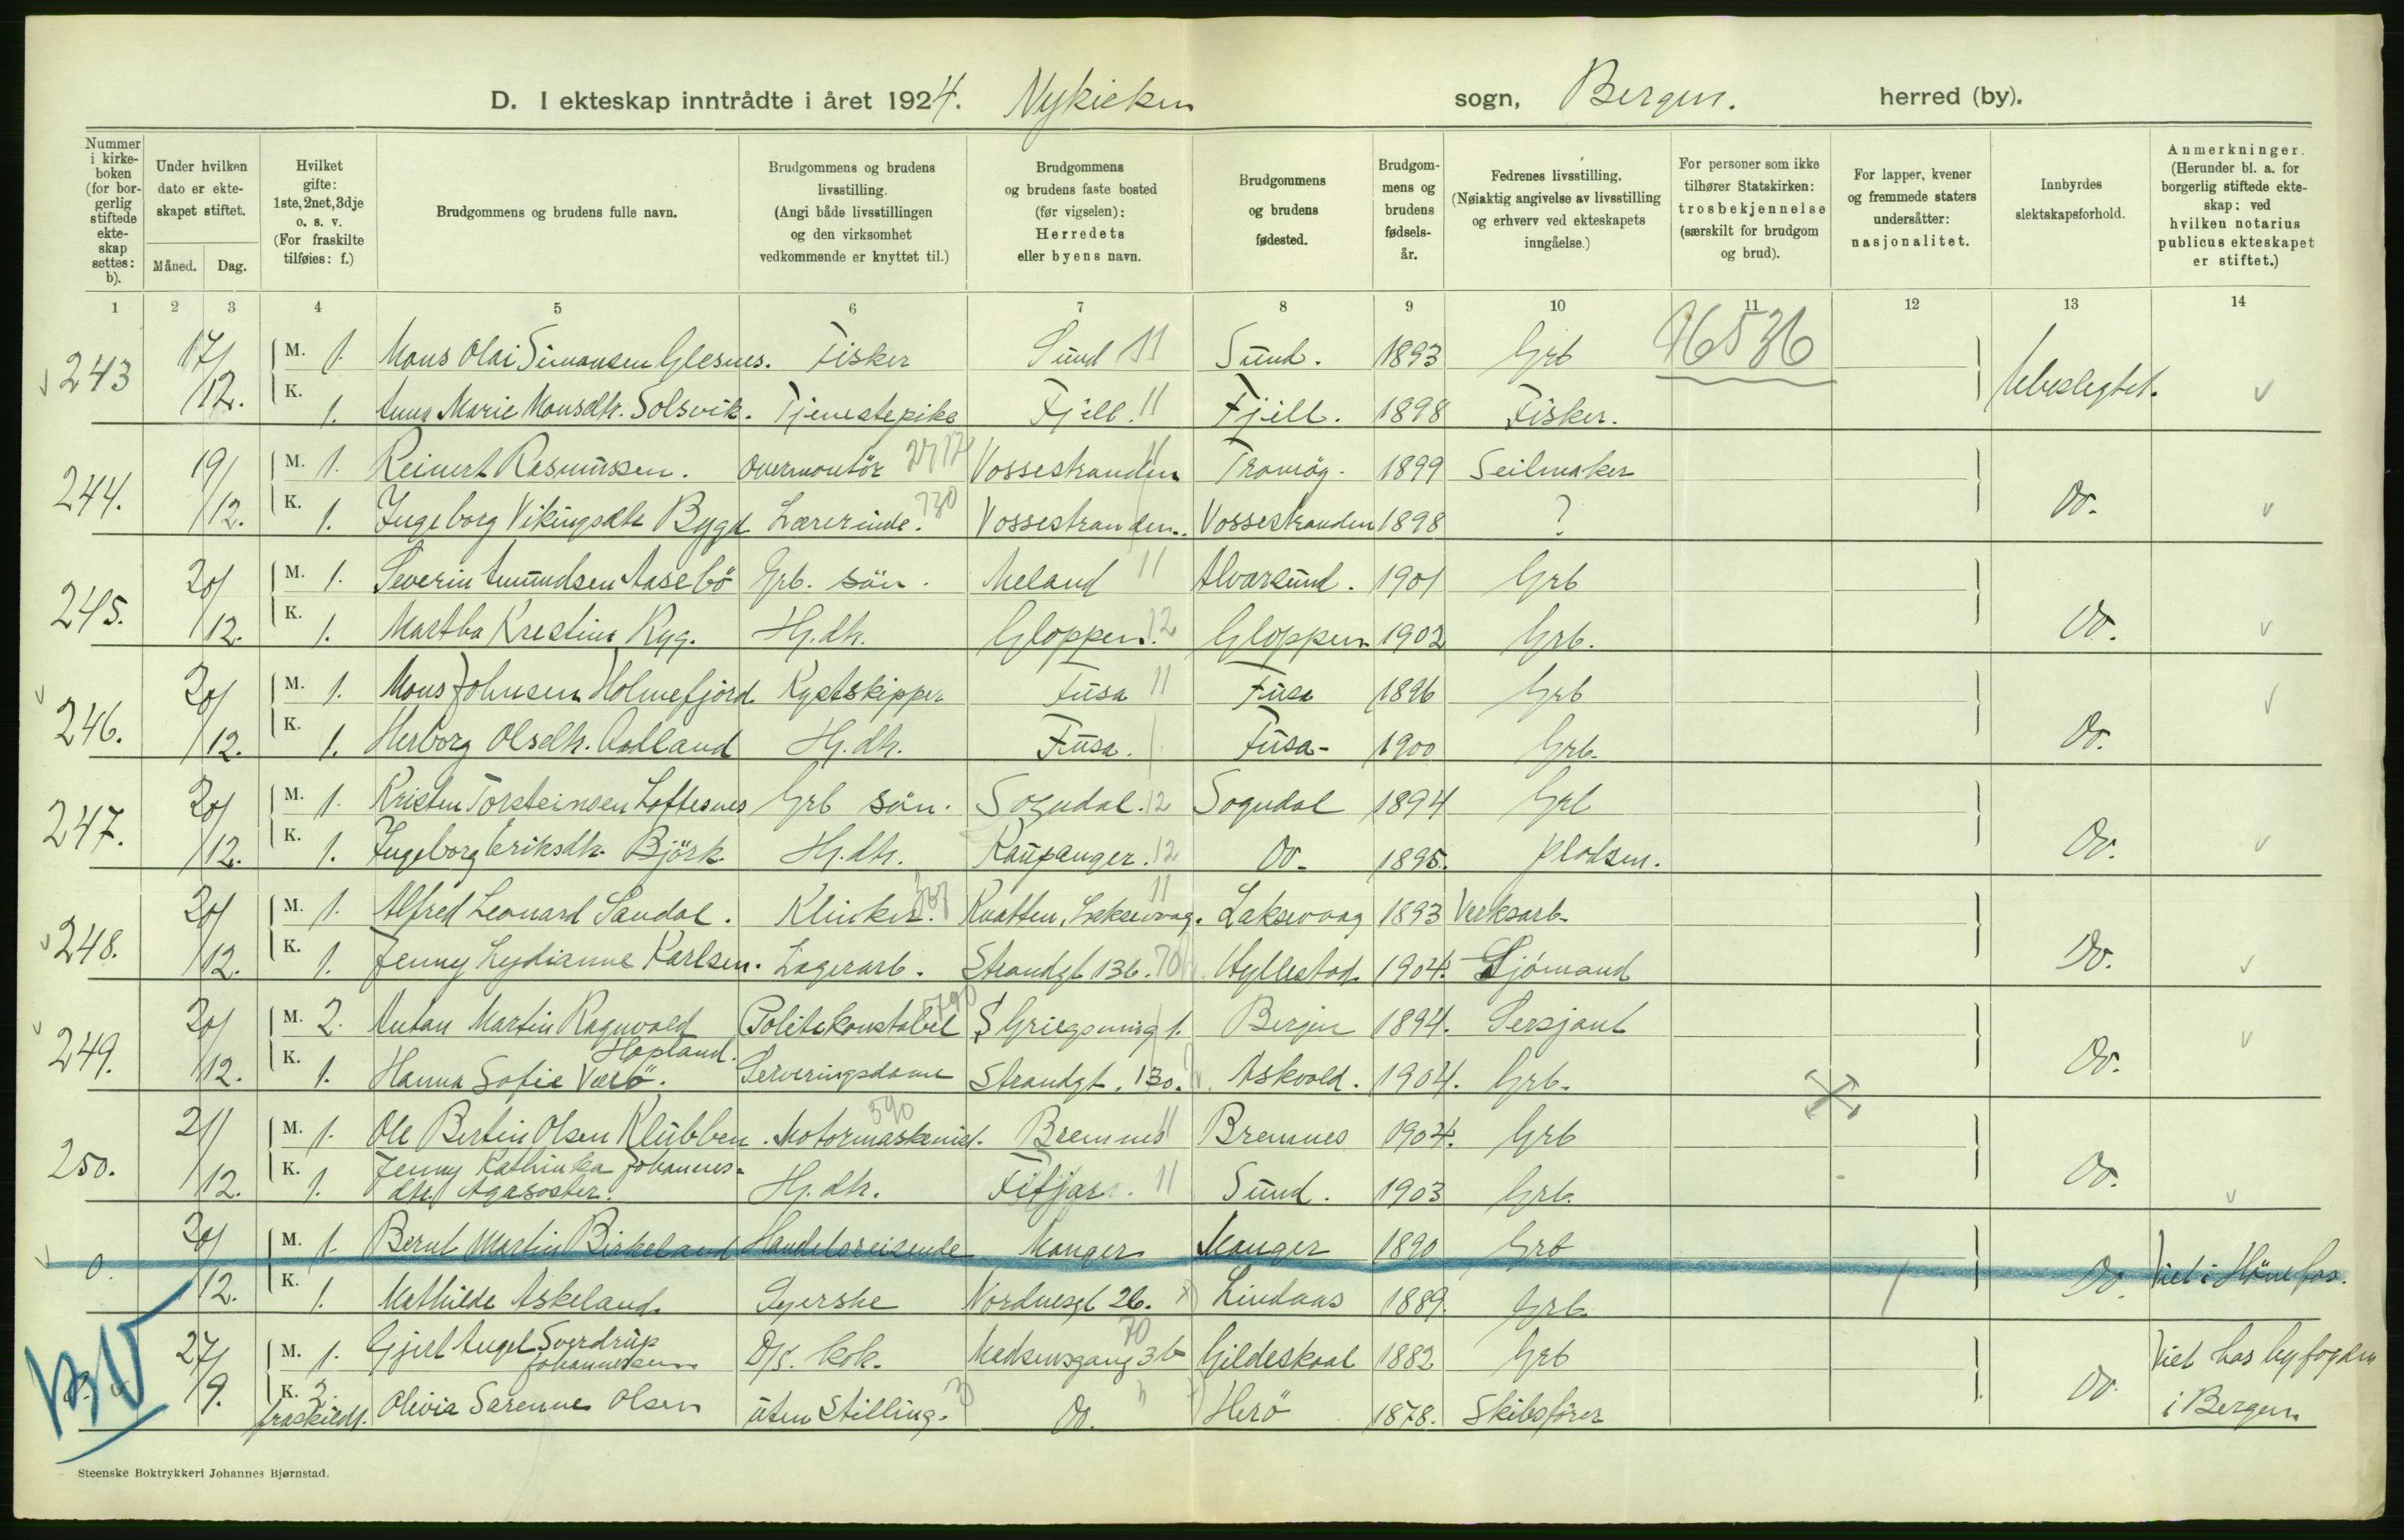 D. I ekteskap inntrådte i året 1924. Nykirken sogn, Bergen. herred (by).
Nummer i kirkeboken (for borgerlig stiftede ekteskap settes: b).
Under hvilken dato er ekteskapet stiftet.
Måned. Dag.
Hvilket gifte: 1ste, 2net, 3dje o. s. v. (For fraskilte tilføies: f.)
Brudgommens og brudens fulle navn.
Brudgommens og brudens livsstilling. (Angi både livsstillingen og den virksomhet vedkommende er knyttet til.)
Brudgommens og brudens faste bosted (før vigselen): Herredets eller byens navn.
Brudgommens og brudens fødested.
Brudgommens og brudens fødselsår.
Fedrenes livsstilling. (Nøiaktig angivelse av livsstilling og erhverv ved ekteskapets inngåelse.)
For personer som ikke tilhører Statskirken: trosbekjennelse (særskilt for brudgom og brud).
For lapper, kvener og fremmede staters undersåtter: nasjonalitet.
Innbyrdes slektskapsforhold.
Anmerkninger. (Herunder bl. a. for borgerlig stiftede ekteskap: ved hvilken notarius publicus ekteskapet er stiftet.)
1 2 3 4 5 6 7 8 9 10 11 12 13 14
243 17/12. M. 1. Mons Olai Simonsen Glesnes. Fisker Sund 11 Sund. 1893 Grb 96536 Ubeslegtet.
K. 1. Anna Marie Monsdtr. Solsvik. Tjenestepike Fjell. 11 Fjell. 1898 Fisker.
244. 19/12. M. 1. Reinert Rasmussen. Overmontör Vossestranden Tromöy. 1899 Seilmaker Do.
K. 1. Ingeborg Vikingsdtr Bygd Lærerinde. 730 Vossestranden. Vossestranden 1898 ?
245. 20/12. M. 1. Severin Amundsen Aasebö Grb. sön. Meland 11 Alvarsund. 1901 Grb Do.
K. 1. Martha Kristine Ryg. Hj. dtr. Gloppen. 12 Gloppen 1902 Grb.
246. 20/12. M. 1. Mons Johnsen Holmefjord Kystskipper Fusa 11 Fusa 1896 Grb Do.
K. 1. Herborg Olsdtr. Aadland Hj. dtr. Fusa. Fusa- 1900 Grb.
247. 20/12. M. 1. Kristen Torsteinsen Loftesnes Grb sön. Sogndal. 12 Sogndal 1894 Grb Do.
K. 1. Ingeborg Eriksdtr. Björk Hj. dtr. Kaupanger. 12 Do- 1895. Pladsm.
248. 20/12. M. 1. Alfred Leonard Sandal. Klinker. Knatten, Laksevaag. 11 Laksevaag 1893 Verksarb.
K. 1. Jenny Lydianne Karlsen. Lagerarb. Strandgt 136. Hyllestad. 1904. Sjömand Do.
249. 20/12. M. 2. Anton Martin Ragnvald Hopland. Politikonstabel Bergen 1894. Sersjant Do.
K. 1. Hanna Sofie Værö. Serveringsdame Strandgt. 130. Askvold. 1904. Grb.
250. 21/12. M. 1. Ole Bertin Olsen Klubben. Motormaskinist. 590 Bremnes 11 Bremnes 1904. Grb Do.
K. 1. Jenny Kathinka Johannesdtr. Agasöster. Hj. dtr. Fitjar. 11 Sund. 1903 Grb.
0. 20/12. M. 1. Bernt Martin Birkeland Handelsreisende Manger Manger 1890 Grb Do. Viet i Hönefos.
K. 1. Mathilde Askeland. Syerske Nordnesgt 26. Lindaas 1889. Grb.
27/9. M. 1. Gjert Angel Sverdrup Johannessen D/S. kok. Madsensgang 3b Gildeskaal 1882 Grb Do. Viet hos byfogden i Bergen
K. 2. fraskildt. Olivia Sørenne Olsen uten Stilling. Do. Herö 1878. Skibsfører
Steenske Boktrykkeri Johannes Bjørnstad.